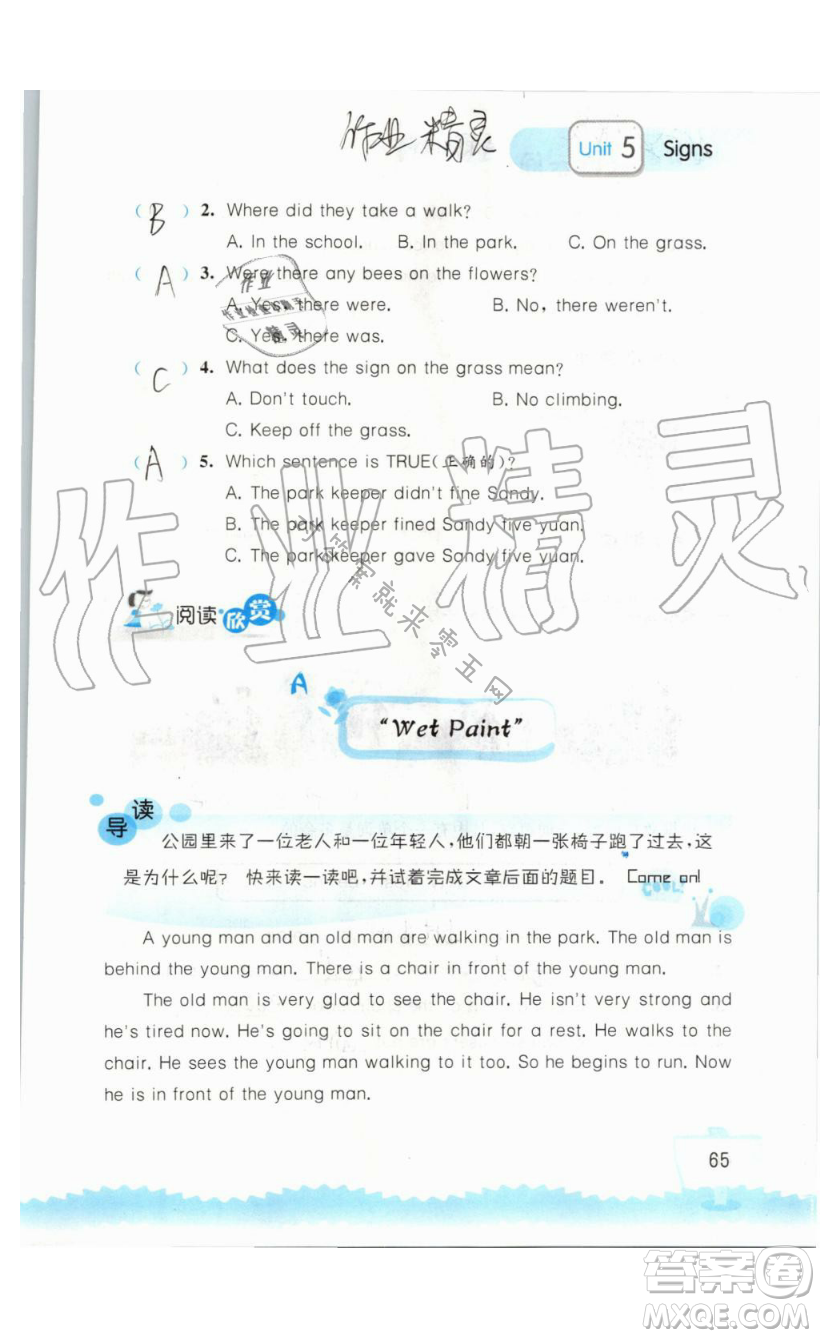 作业精灵
Unit 5 Signs
( B ) 2. Where did they take a walk?
A. In the school. B. In the park. C. On the grass.
( A ) 3. Were there any bees on the flowers?
A. Yes, there were. B. No, there weren't.
C. Yes, there was.
( C ) 4. What does the sign on the grass mean?
A. Don't touch. B. No climbing.
C. Keep off the grass.
( A ) 5. Which sentence is TRUE(正确的)?
A. The park keeper didn't fine Sandy.
B. The park keeper fined Sandy five yuan.
C. The park keeper gave Sandy five yuan.
作业精灵
对答案就来零五网
阅读欣赏
A
"Wet Paint"
导读
公园里来了一位老人和一位年轻人,他们都朝一张椅子跑了过去,这
是为什么呢? 快来读一读吧,并试着完成文章后面的题目。 Come on!
COOL!
A young man and an old man are walking in the park. The old man is
behind the young man. There is a chair in front of the young man.
The old man is very glad to see the chair. He isn't very strong and
he's tired now. He's going to sit on the chair for a rest. He walks to the
chair. He sees the young man walking to it too. So he begins to run. Now
he is in front of the young man.
65
答案卷
MXQE.COM